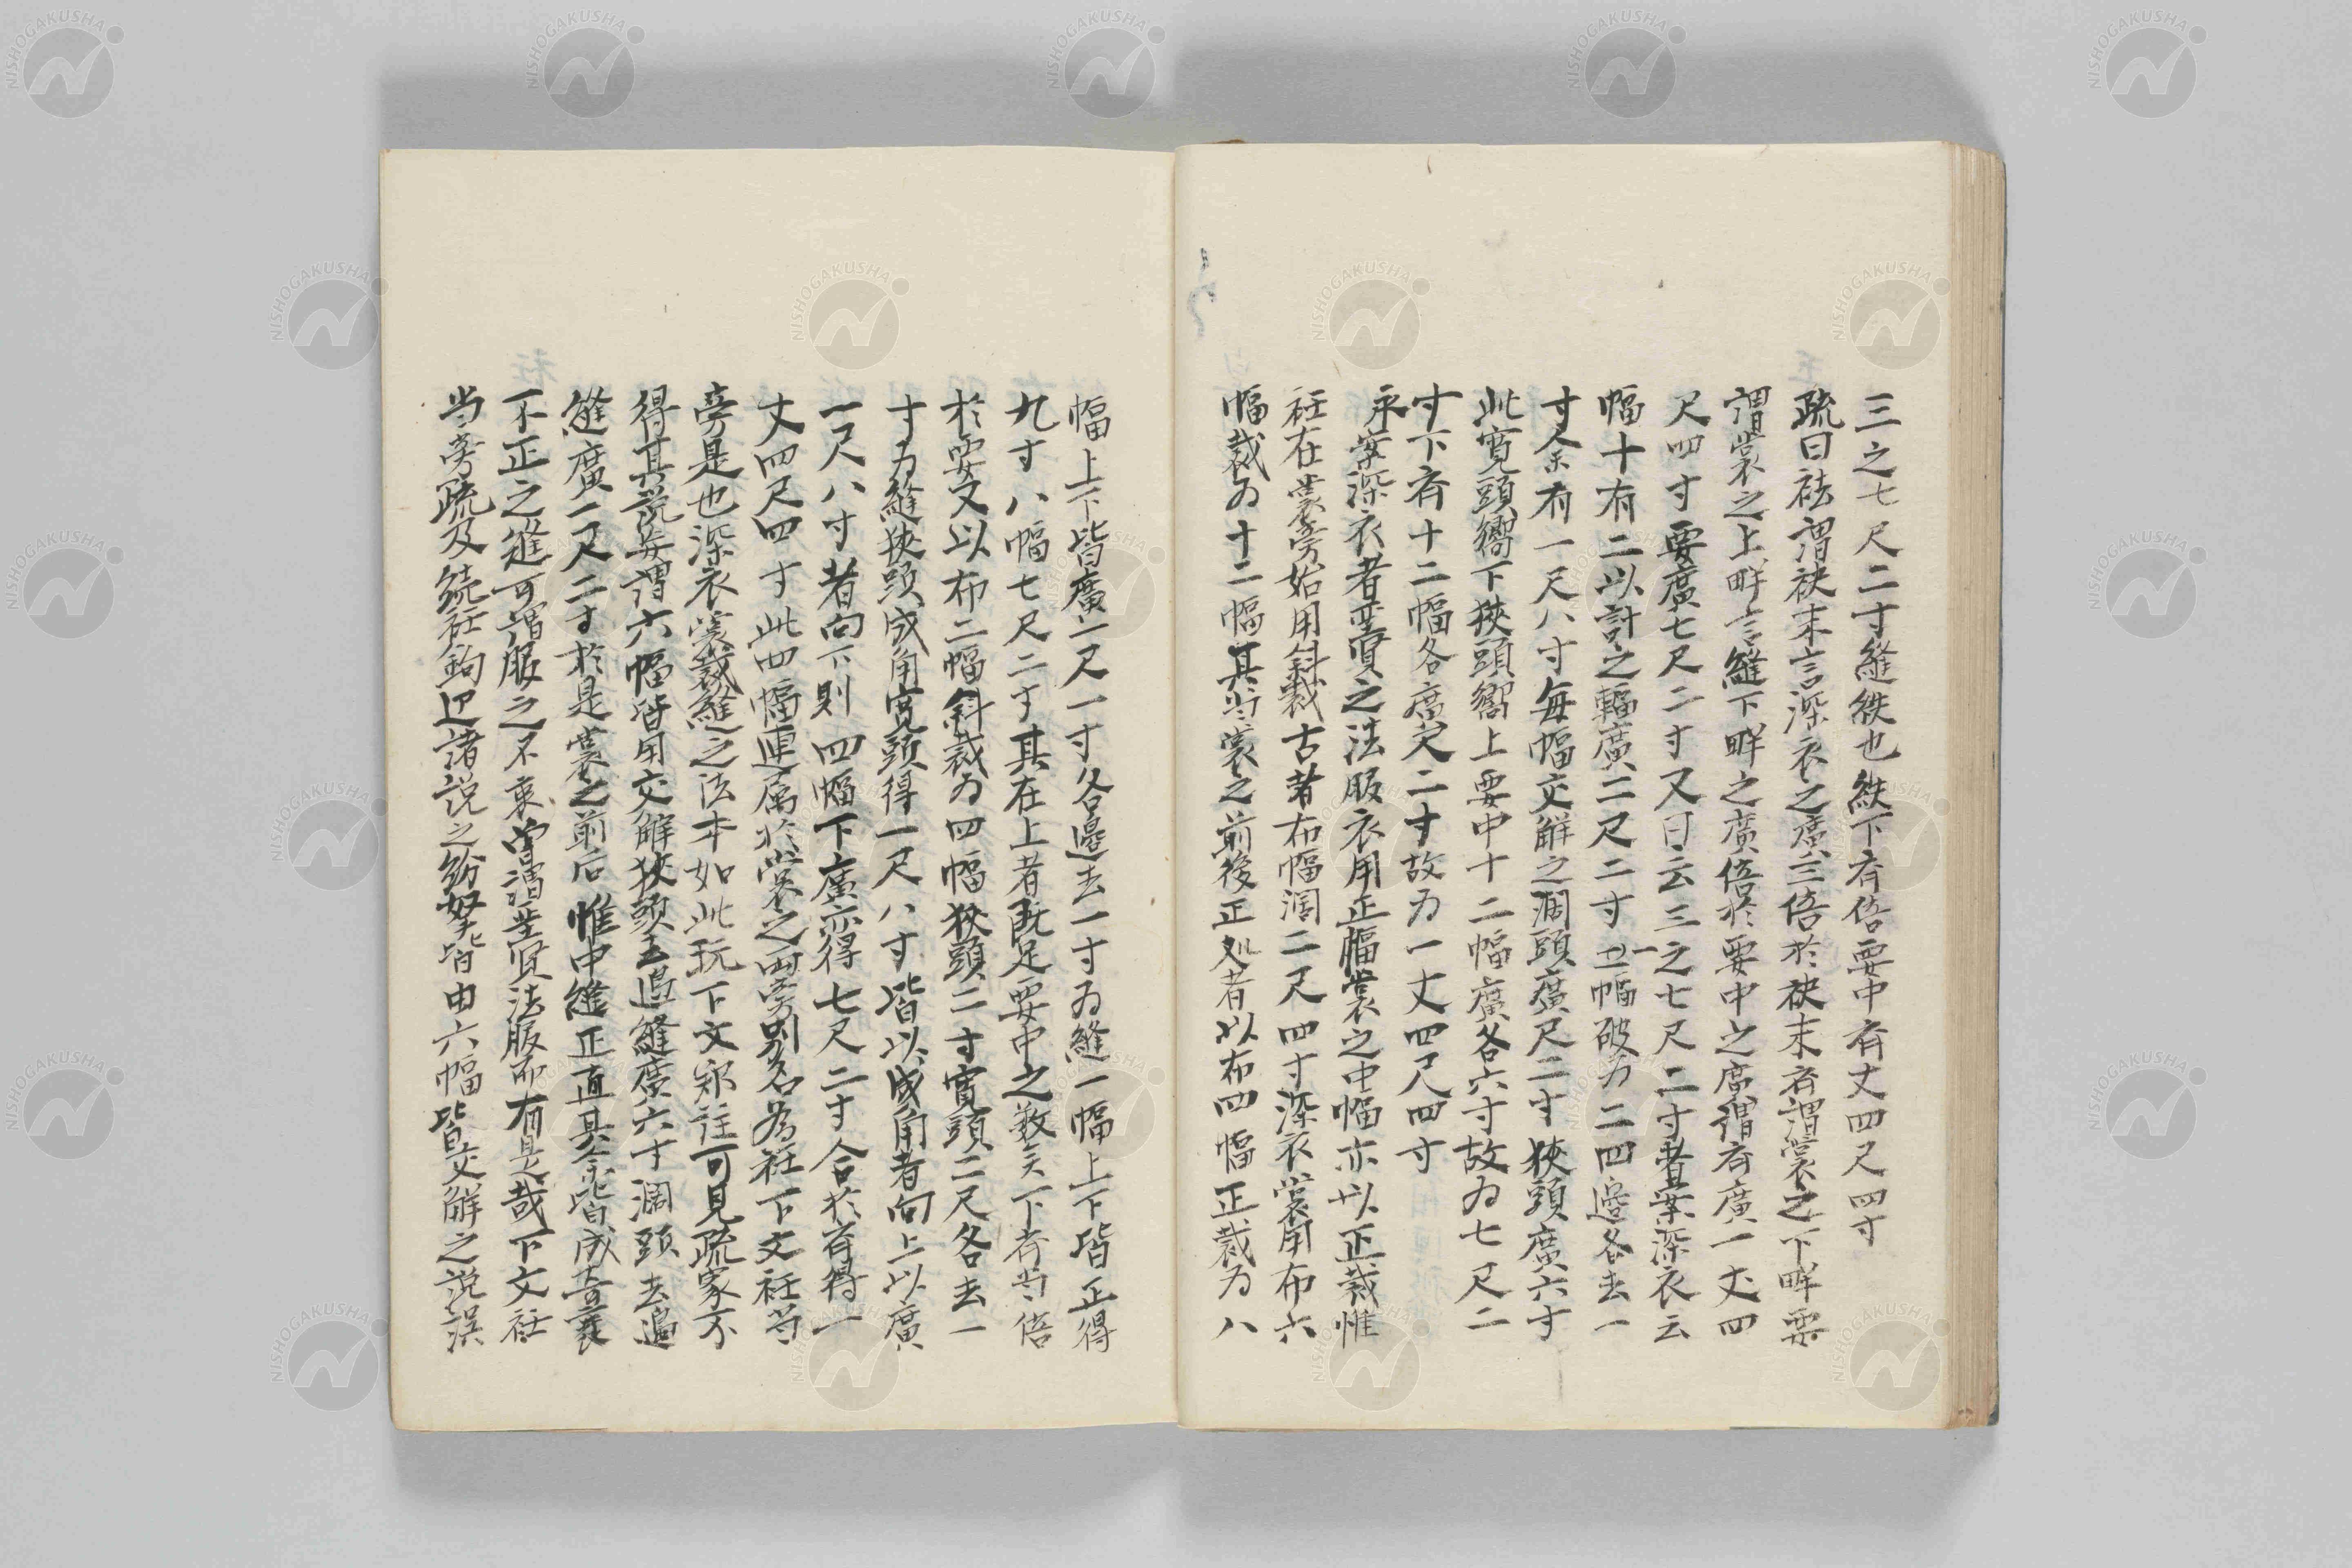 三之七尺二寸縫紩也紩下斉倍要中斉丈四尺四寸
疏曰袪謂袂末言深衣之廣三倍於袂末斉謂裳之下畔要
謂裳之上畔言縫下畔之廣倍於要中之廣謂斉廣一丈四
尺四寸要廣七尺二寸又曰云三之七尺二寸者案深衣云
幅十有二以計之輻廣二尺二寸一幅破为二四邉各去一
寸余有一尺八寸毎幅交解之濶頭廣尺二寸狹頭廣六寸
此寛頭嚮下狹頭嚮上要中十二幅廣各六寸故为七尺二
寸下斉十二幅各廣尺二寸故为一丈四尺四寸
永案深衣者聖賢之法服衣用正幅裳之中幅亦以正裁惟
衽在裳旁始用斜裁古者布幅濶二尺四寸深衣裳用布六
幅裁为十二幅其当裳之前後正処者以布四幅正裁为八
幅上下皆廣一尺一寸各邉去一寸为縫一幅上下皆正得
九寸八幅七尺二寸其在上者既足要中之数矣下斉当倍
於要又以布二幅斜裁为四幅狹頭二寸寛頭二尺各去一
寸为縫狹頭成角寛頭得一尺八寸皆以成角者向上以廣
一尺八寸者向下則四幅下廣亦得七尺二寸合於斉得一
丈四尺四寸此四幅連属於裳之両旁別名为衽下文衽当
旁是也深衣裳裁縫之法本如此玩下文鄭註可見疏家不
得其説妄謂六幅皆用交解狹頭去邉縫廣六寸濶頭去邉
縫廣一尺二寸於是裳之前后惟中縫正直其余皆成奇衺
不正之縫可謂服之不衷曽謂聖賢法服而有是哉下文衽
当旁疏及続衽鉤辺諸説之紛拏皆由六幅皆交解之説誤